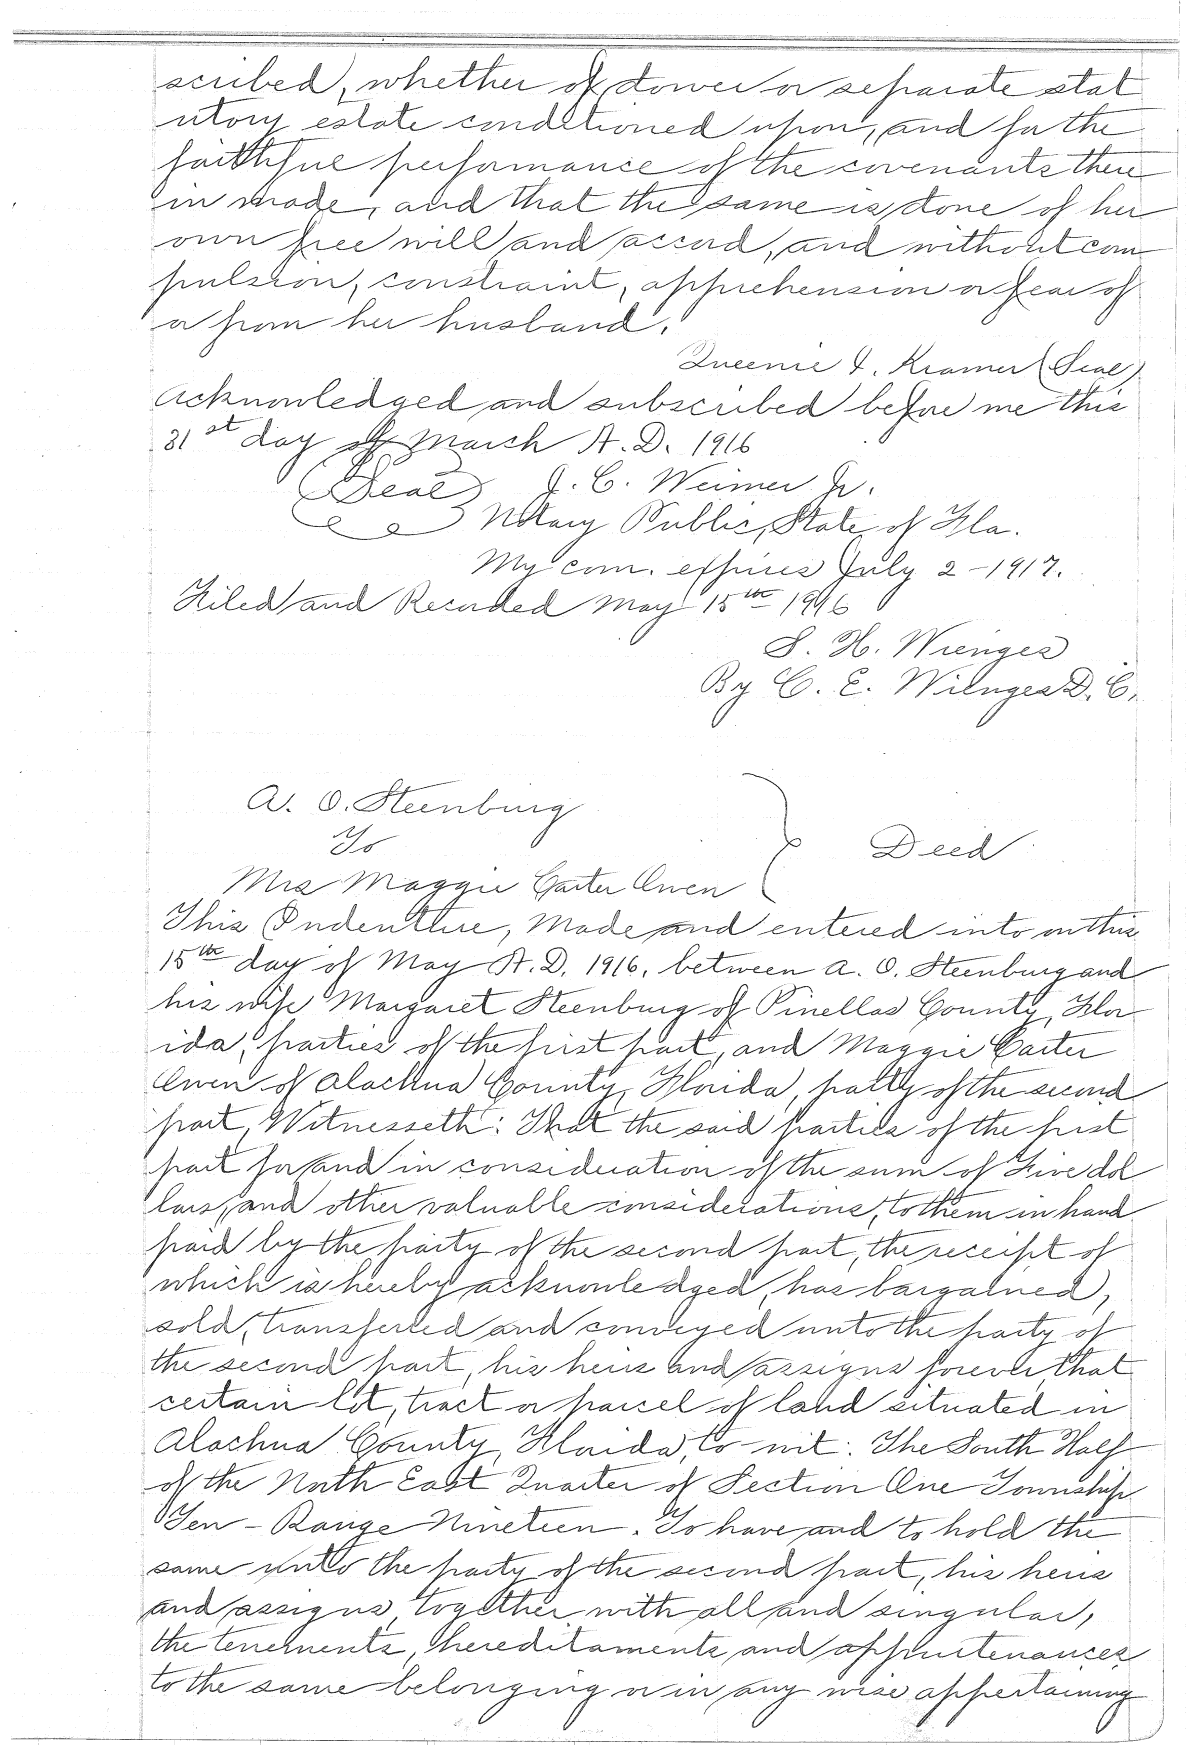 scribed, whether of dower or separate stat
utory estate conditioned upon, and for the
faithful performance of the covenants there
in made, and that the same is done of her
own free will and accord, and without com
pulsion, constraint, apprehension or fear of
or from her husband.
Queenie I. Kramer (Seal)
Acknowledged and subscribed before me this
31st day of March A.D. 1916
(Seal) J. C. Weimer Jr.
Notary Public, State of Fla.
My com. expires July 2-1917.
Filed and Recorded May 15th 1916
S. H. Wienges
By C. E. Wienges D. C.
A. O. Steenburg
To
Deed
Mrs Maggie Carter Owen
This Indenture, Made and entered into on this
15th day of May A.D. 1916, between A. O. Steenburg and
his wife Margaret Steenburg of Pinellas County, Flor
ida, parties of the first part, and Maggie Carter
Owen of Alachua County, Florida, party of the second
part, Witnesseth: That the said parties of the first
part for and in consideration of the sum of Five dol
lars, and other valuable considerations, to them in hand
paid by the party of the second part, the receipt of
which is hereby acknowledged, has bargained,
sold, transferred and conveyed unto the party of
the second part, his heirs and assigns forever, that
certain lot, tract or parcel of land situated in
Alachua County, Florida, to wit: The South Half
of the North East Quarter of Section One Township
Ten - Range Nineteen. To have and to hold the
same unto the party of the second part, his heirs
and assigns, together with all and singular,
the tenements, hereditaments and appurtenances
to the same belonging or in any wise appertaining